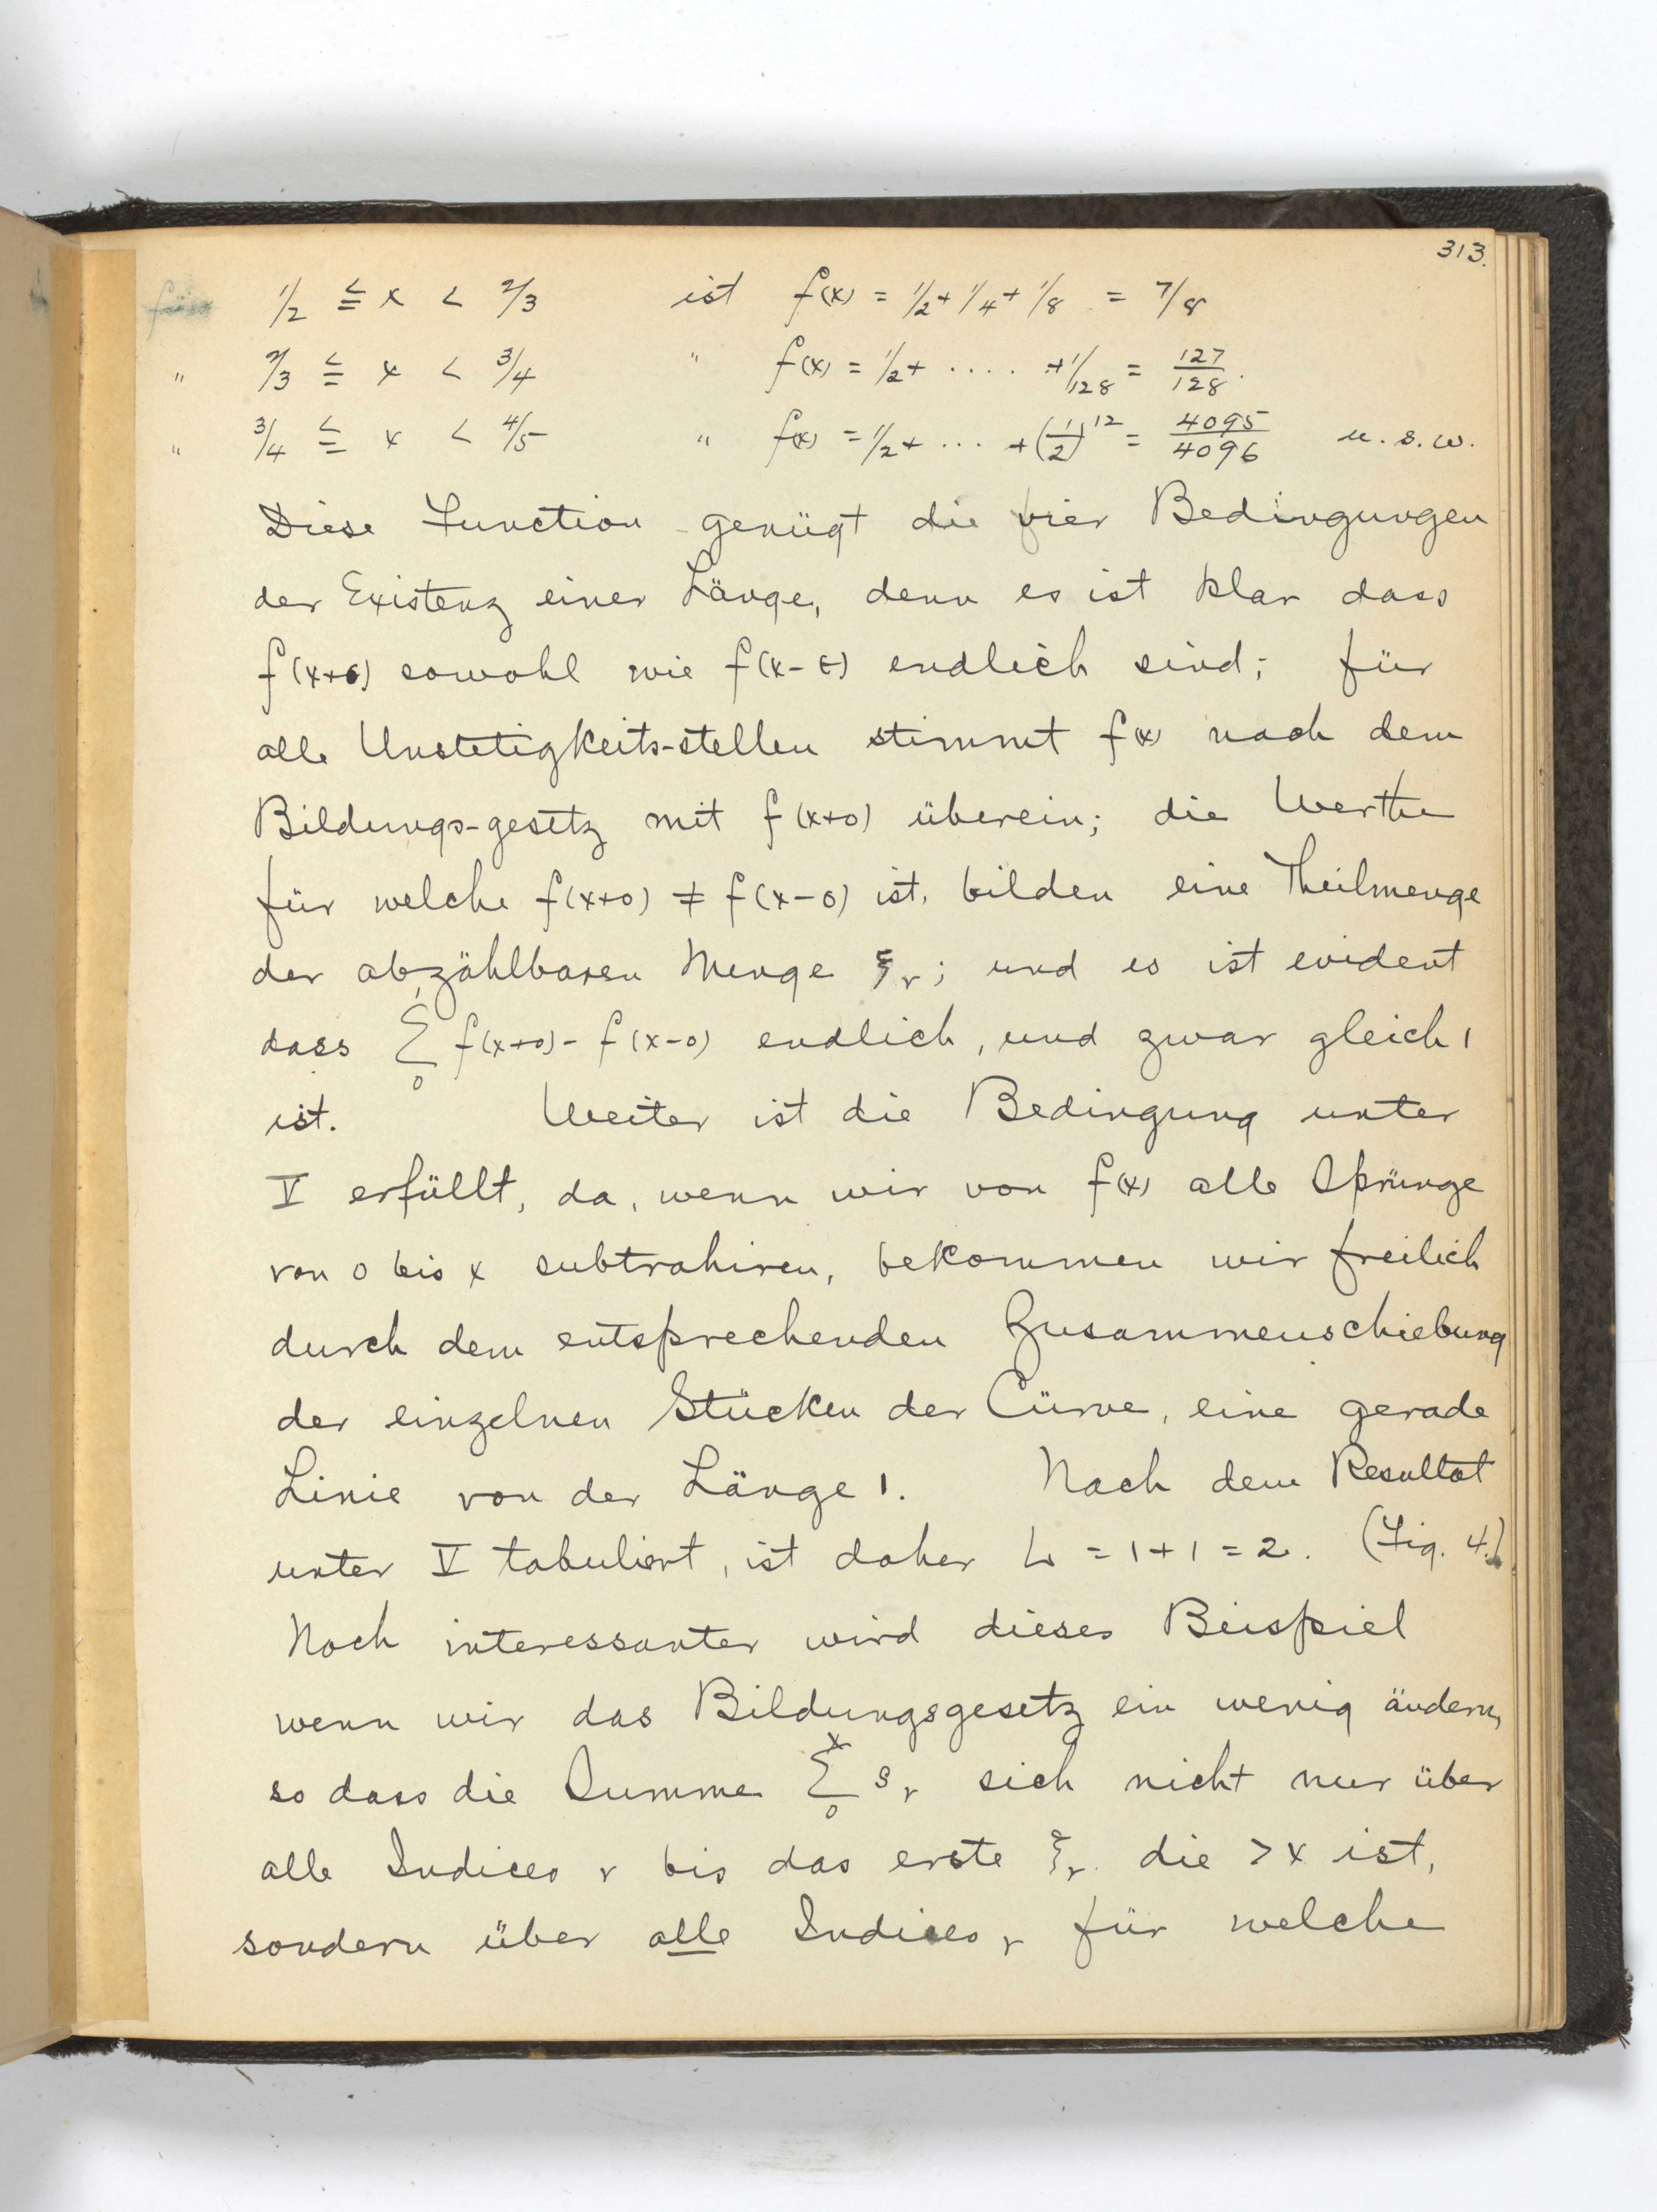 313.
für 1/2 ≦ x < 2/3 ist f(x) = 1/2 + 1/4 + 1/8 = 7/8
" 2/3 ≦ x < 3/4 " f(x) = 1/2 + .... + 1/128 = 127/128.
" 3/4 ≦ x < 4/5 " f(x) = 1/2 + ... + (1/2)^12 = 4095/4096 u. s. w.
Diese Function genügt die vier Bedingungen
der Existenz einer Länge, denn es ist klar dass
f(x+0) sowohl wie f(x-0) endlich sind; für
alle Unstetigkeits-stellen stimmt f(x) nach dem
Bildungs-gesetz mit f(x+0) überein; die Werthe
für welche f(x+0) ≠ f(x-0) ist, bilden eine Theilmenge
der abzählbaren Menge ξ_r; und es ist evident
dass Σ_0^1 f(x+0) - f(x-0) endlich, und zwar gleich 1
ist. Weiter ist die Bedingung unter
V erfüllt, da, wenn wir von f(x) alle Sprünge
von 0 bis x subtrahiren, bekommen wir freilich
durch dem entsprechenden Zusammenschiebung
der einzelnen Stücken der Cürve, eine gerade
Linie von der Länge 1. Nach dem Resultat
unter V tabuliert, ist daher L = 1 + 1 = 2. (Fig. 4.)
Noch interessanter wird dieses Beispiel
wenn wir das Bildungsgesetz ein wenig ändern,
so dass die Summe Σ_0^x s_r sich nicht nur über
alle Indices r bis das erste ξ_r die > x ist,
sondern über alle Indices r für welche